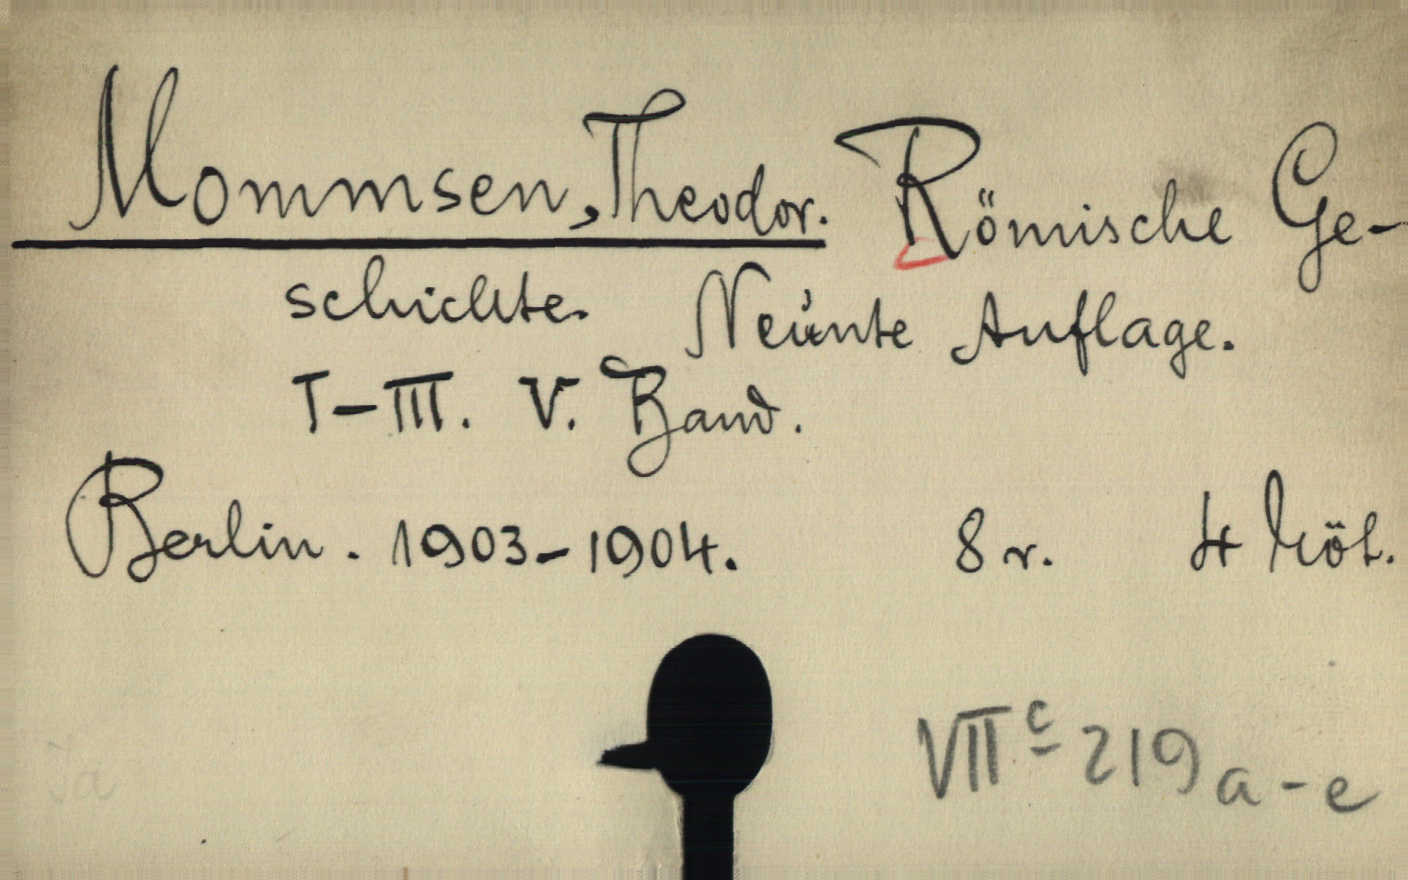 Mommsen, Theodor. Römische Ge-
schichte. Neunte Auflage.
I-III. V. Band.
Berlin. 1903-1904. 8 r. 4 köt.
VII c 219 a-e